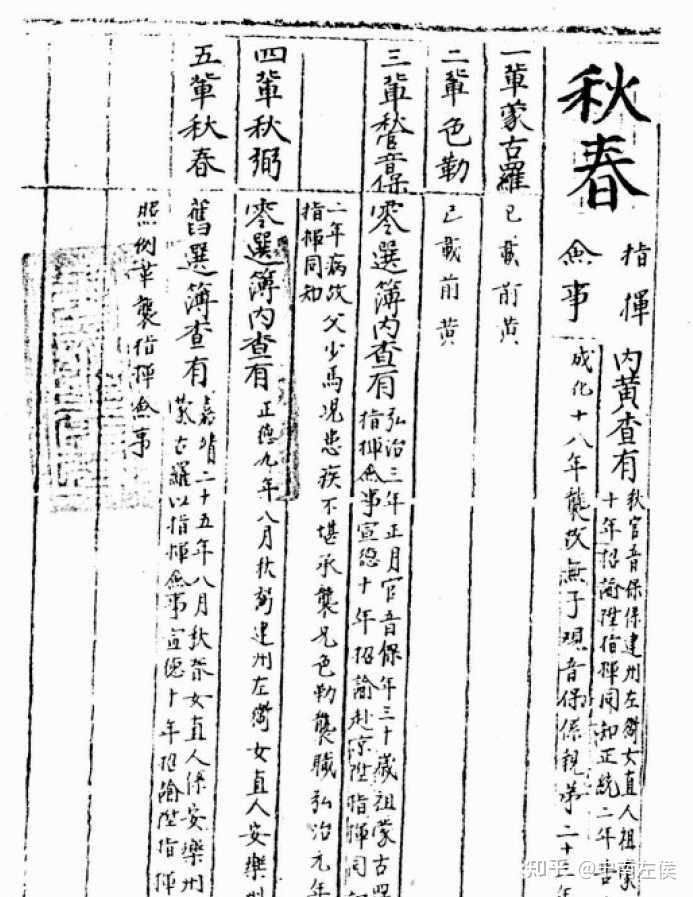 秋春
指揮
僉事
内黄查有
秋官音保係建州左衛女直人祖蒙
十年招諭陞指揮同知正統二年古
成化十八年襲故無子觀音保係親弟二十
一輩蒙古羅
已載前黄
二輩色勒
已載前黄
三輩秋官音保
零選簿内查有
弘治三年正月官音保年三十歲祖蒙古羅
指揮僉事宣德十年招諭赴京陞指揮同知
二年病故父少馬兒患疾不堪承襲兄色勒襲職弘治元年
指揮同知
四輩秋弼
零選簿内查有
正德九年八月秋弼建州左衛女直人安樂州
五輩秋春
舊選簿查有
嘉靖二十五年八月秋春女直人係安樂州
蒙古羅以指揮僉事宣德十年招諭陞指揮
照例革襲指揮僉事
知乎 @中南左侯